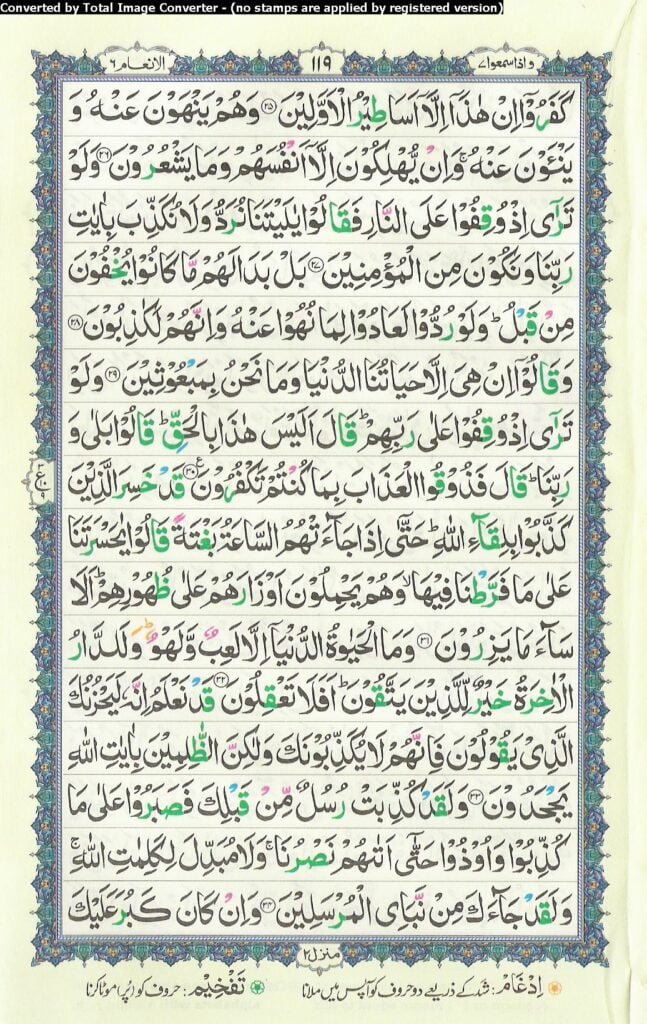 Converted by Total Image Converter - (no stamps are applied by registered version)
واذاسمعوا۷ ۱۱۹ الانعام۶
كَفَرُوْۤا اِنْ هٰذَاۤ اِلَّاۤ اَسَاطِیْرُ الْاَوَّلِیْنَ ﴿۲۵﴾ وَهُمْ یَنْهَوْنَ عَنْهُ وَ
یَنْـَٔوْنَ عَنْهُ ۚ وَاِنْ یُّهْلِكُوْنَ اِلَّاۤ اَنْفُسَهُمْ وَمَا یَشْعُرُوْنَ ﴿۲۶﴾ وَلَوْ
تَرٰۤی اِذْ وُقِفُوْا عَلَی النَّارِ فَقَالُوْا یٰلَیْتَنَا نُرَدُّ وَلَا نُكَذِّبَ بِاٰیٰتِ
رَبِّنَا وَنَكُوْنَ مِنَ الْمُؤْمِنِیْنَ ﴿۲۷﴾ بَلْ بَدَا لَهُمْ مَّا كَانُوْا یُخْفُوْنَ
مِنْ قَبْلُ ؕ وَلَوْ رُدُّوْا لَعَادُوْا لِمَا نُهُوْا عَنْهُ وَاِنَّهُمْ لَكٰذِبُوْنَ ﴿۲۸﴾
وَقَالُوْۤا اِنْ هِیَ اِلَّا حَیَاتُنَا الدُّنْیَا وَمَا نَحْنُ بِمَبْعُوْثِیْنَ ﴿۲۹﴾ وَلَوْ
تَرٰۤی اِذْ وُقِفُوْا عَلٰی رَبِّهِمْ ؕ قَالَ اَلَیْسَ هٰذَا بِالْحَقِّ ؕ قَالُوْا بَلٰی وَ
رَبِّنَا ؕ قَالَ فَذُوْقُوا الْعَذَابَ بِمَا كُنْتُمْ تَكْفُرُوْنَ ﴿۳۰﴾ ع قَدْ خَسِرَ الَّذِیْنَ
كَذَّبُوْا بِلِقَآءِ اللّٰهِ ؕ حَتّٰۤی اِذَا جَآءَتْهُمُ السَّاعَةُ بَغْتَةً قَالُوْا یٰحَسْرَتَنَا
عَلٰی مَا فَرَّطْنَا فِیْهَا ۙ وَهُمْ یَحْمِلُوْنَ اَوْزَارَهُمْ عَلٰی ظُهُوْرِهِمْ ؕ اَلَا
سَآءَ مَا یَزِرُوْنَ ﴿۳۱﴾ وَمَا الْحَیٰوةُ الدُّنْیَاۤ اِلَّا لَعِبٌ وَّلَهْوٌ ؕ وَلَلدَّارُ
الْاٰخِرَةُ خَیْرٌ لِّلَّذِیْنَ یَتَّقُوْنَ ؕ اَفَلَا تَعْقِلُوْنَ ﴿۳۲﴾ قَدْ نَعْلَمُ اِنَّهٗ لَیَحْزُنُكَ
الَّذِیْ یَقُوْلُوْنَ فَاِنَّهُمْ لَا یُكَذِّبُوْنَكَ وَلٰكِنَّ الظّٰلِمِیْنَ بِاٰیٰتِ اللّٰهِ
یَجْحَدُوْنَ ﴿۳۳﴾ وَلَقَدْ كُذِّبَتْ رُسُلٌ مِّنْ قَبْلِكَ فَصَبَرُوْا عَلٰی مَا
كُذِّبُوْا وَاُوْذُوْا حَتّٰۤی اَتٰىهُمْ نَصْرُنَا ۚ وَلَا مُبَدِّلَ لِكَلِمٰتِ اللّٰهِ ۚ
وَلَقَدْ جَآءَكَ مِنْ نَّبَاِی الْمُرْسَلِیْنَ ﴿۳۴﴾ وَاِنْ كَانَ كَبُرَ عَلَیْكَ
منزل۲
اِدْغَام: شد کے ذریعے دو حروف کو آپس میں ملانا تَفْخِیْم: حروف کو (پُر) موٹا کرنا